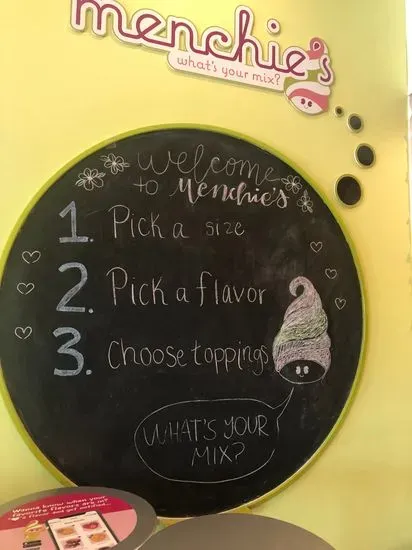 menchie's
what's your mix?
Welcome
to Menchie's
1. Pick a size
2. Pick a flavor
3. Choose toppings
WHAT'S YOUR
MIX?
Wanna know when your
favorite flavors are in?
flavor and get notified...